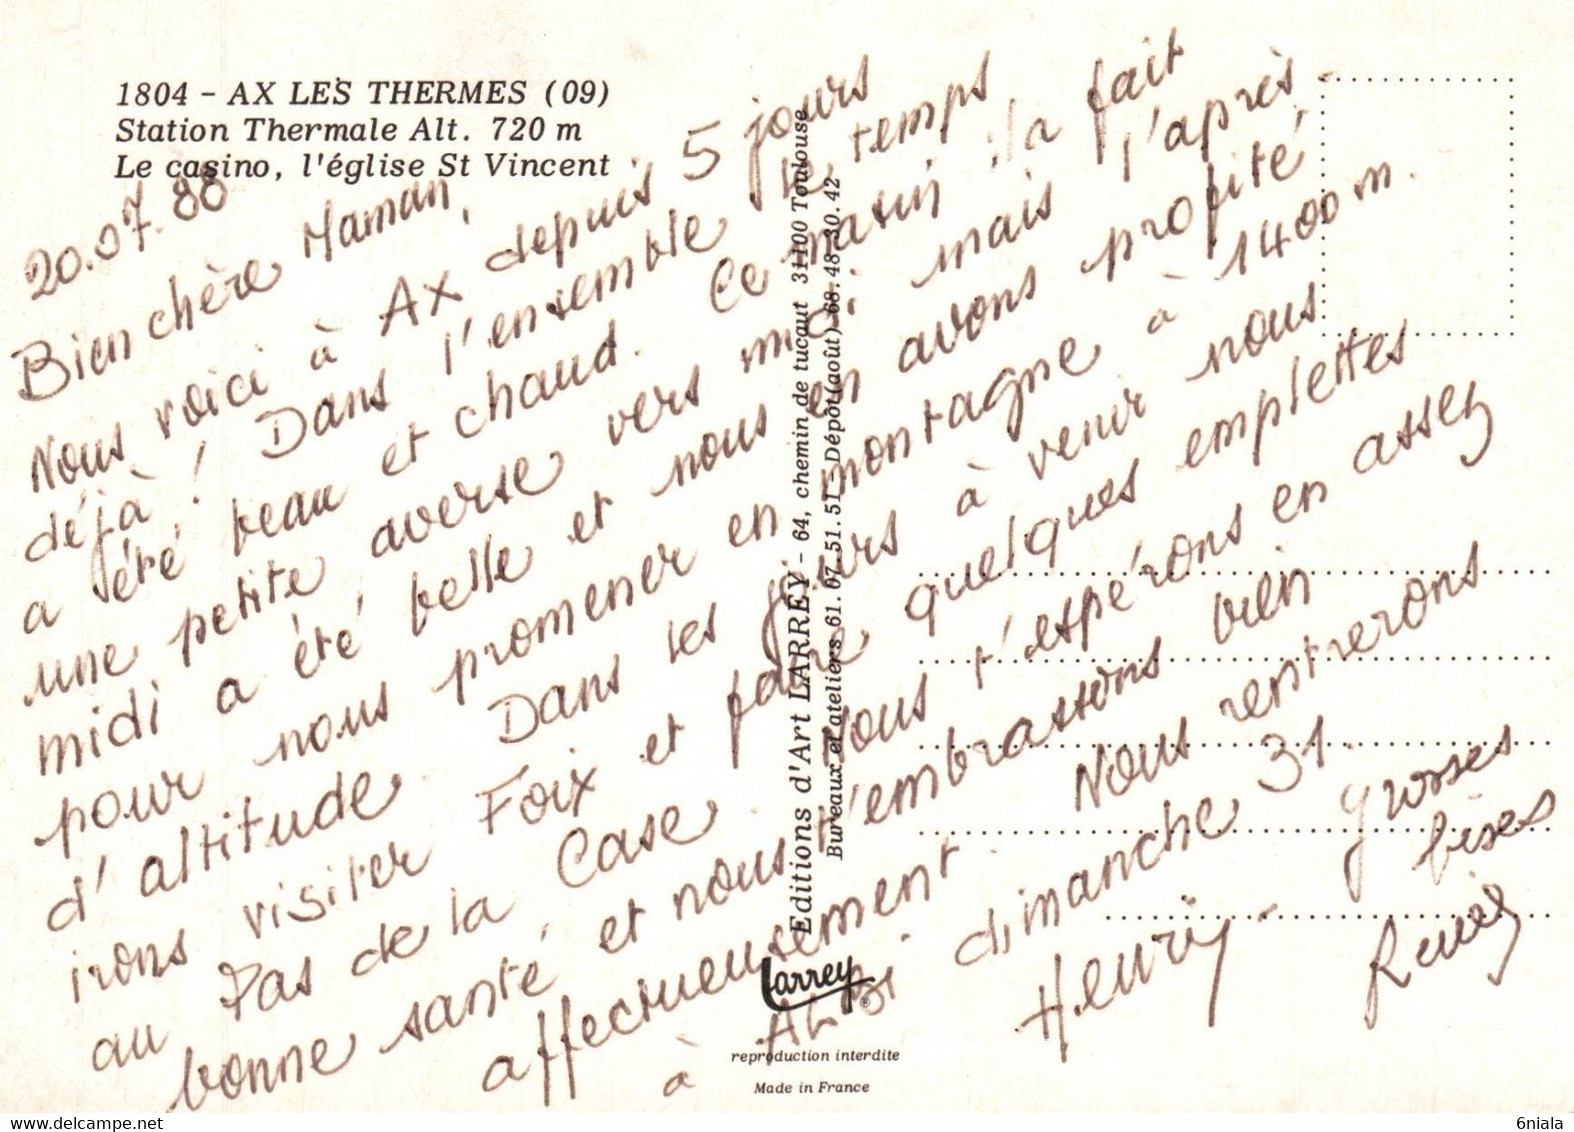 1804 - AX LES THERMES (09)
Station Thermale Alt. 720 m
Le casino, l'église St Vincent
20.07.88
Bien chère Maman,
Nous voici à Ax depuis 5 jours
déjà! Dans l'ensemble le temps
a été beau et chaud. Ce matin il a fait
une petite averse vers midi mais l'après-
midi a été belle et nous en avons profité
pour nous promener en montagne à 1400 m.
d'altitude. Dans les jours à venir nous
irons visiter Foix et faire quelques emplettes
au Pas de la Case. Nous t'espérons en assez
bonne santé et nous t'embrassons bien
affectueusement. Nous rentrerons
à ALBI dimanche 31. grosses
bises
Henri - René
Editions d'Art LARREY - 64, chemin de tucaut 31100 Toulouse
Bureaux et ateliers 61.07.51.51 - Dépôt (août) 68.48.30.42
Larrey
®
reproduction interdite
Made in France
6niala